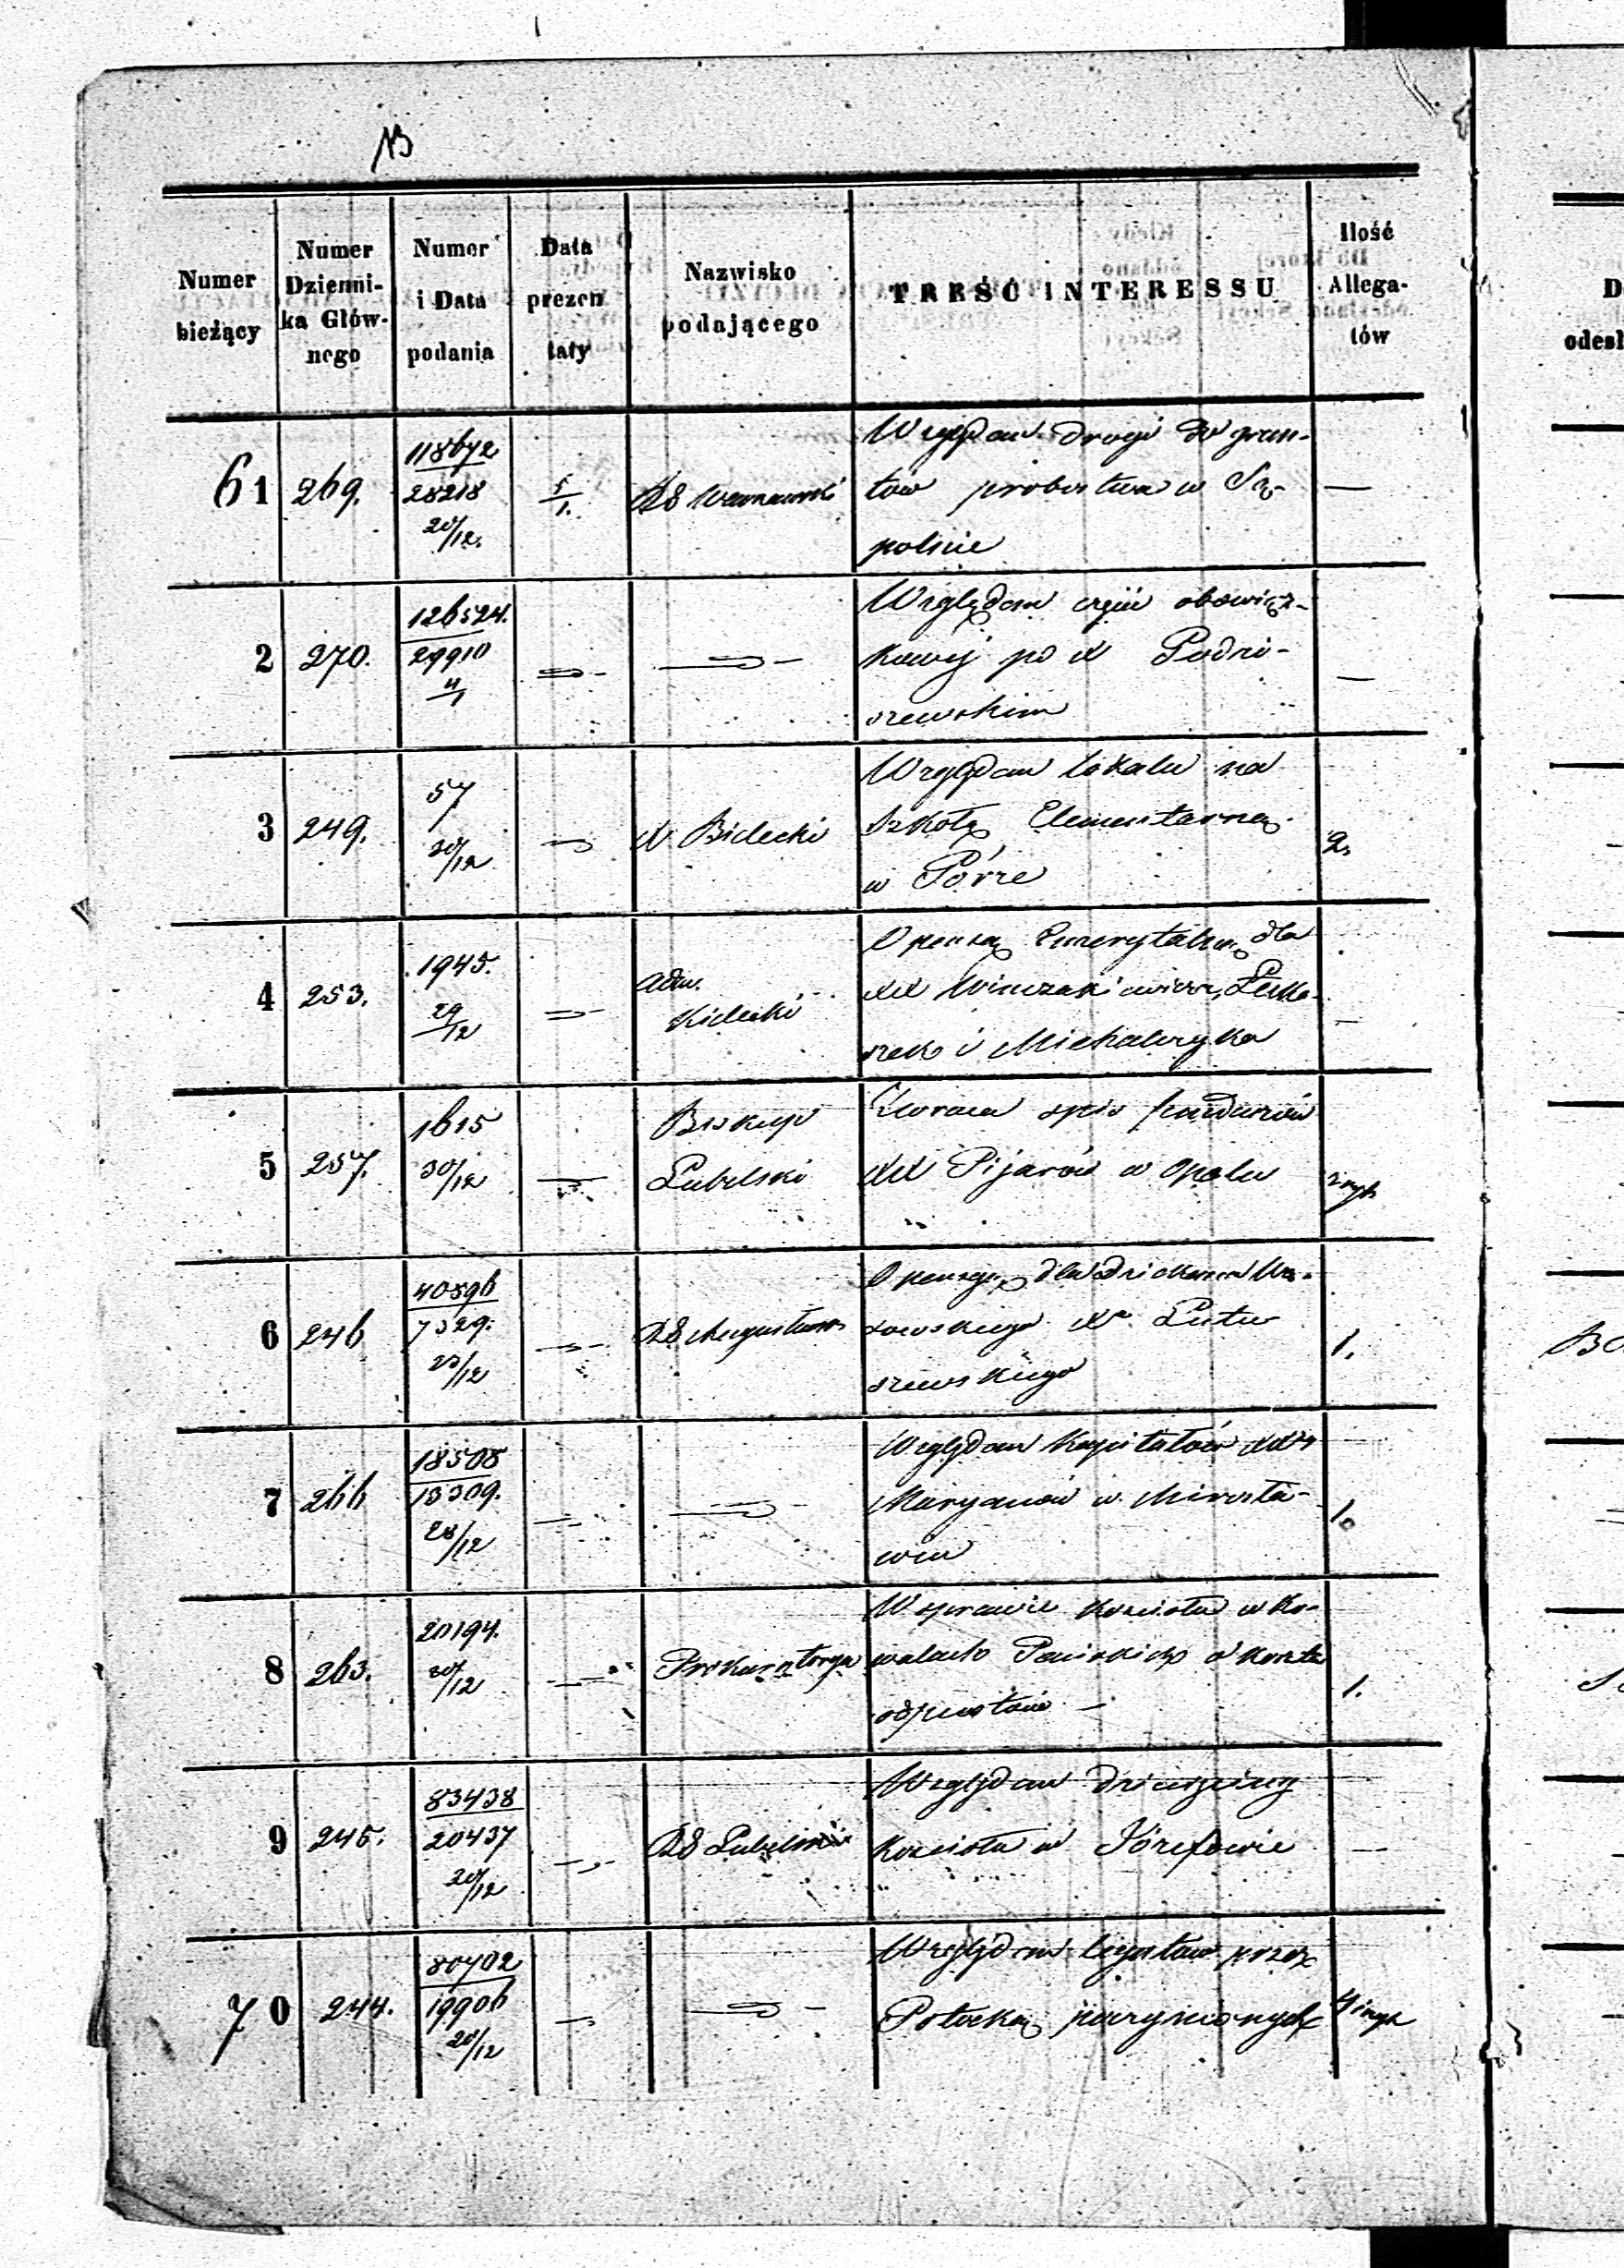 Numer bieżący
Numer Dzienni-
ka Głów-
nego
Numer
i Data
podania
Data
prezen
taty
Nazwisko
podającego
TREŚĆ INTERESSU
Ilość
Allega-
tów
61 269. 118672 28218 20/12. 5/1. RG Warszawski Względem drogi do grun- —
tów probostwa w
2 270. 126524. 29910 4/1 Względem części obowiąz- —
kowej po X
szewskim
3 249. 57 30/12 X Bielecki Względem lokalu na 2.
Szkołę Elementarną
w Pórze
4 253. 1945. 29/12 Adm. Kielecki O pensą Emerytalną dla —
XX
i Michalczyka
5 257. 1615 30/12 Biskup Lubelski Zwraca spis funduszów
XX Pijarów w Opolu
6 246 40896 7329. 23/12 RG Augustows O pensyę dla Dziekana 1.
X
szewskiego
7 266 18508 13309. 28/12 Względem kapitałów XX 1.
Maryanów w Mirosła-
wiu
8 263. 20194. 30/12 Prokuratorya W sprawie kościoła w Ko- 1.
walach Pańskich o koszta
odpustów —
9 245. 83438 20437 20/12 RG Lubelski Względem dzwonnicy —
kościoła w Józefowie
70 244. 80702 19906 20/12 Względem legatów przez
Potocką poczynionych
B